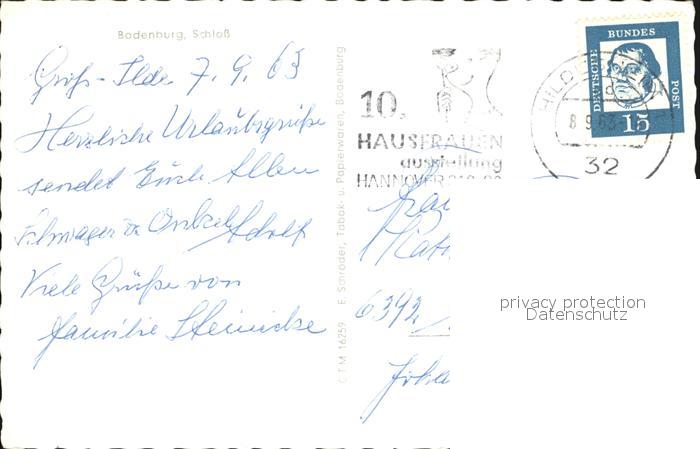 Bodenburg, Schloß
Groß-Ilde 7. 9. 63
Herzliche Urlaubsgrüße
sendet Euch Allen
Onkel Adolf
Viele Grüße von
Familie Steinicke
CTM 16259 E. Schröder, Tabak- u. Papierwaren, Bodenburg
10.
HAUSFRAUEN
ausstellung
HANNOVER
DEUTSCHE
BUNDES
POST
15
HILDESHEIM
8.9.63
32
6392
privacy protection
Datenschutz